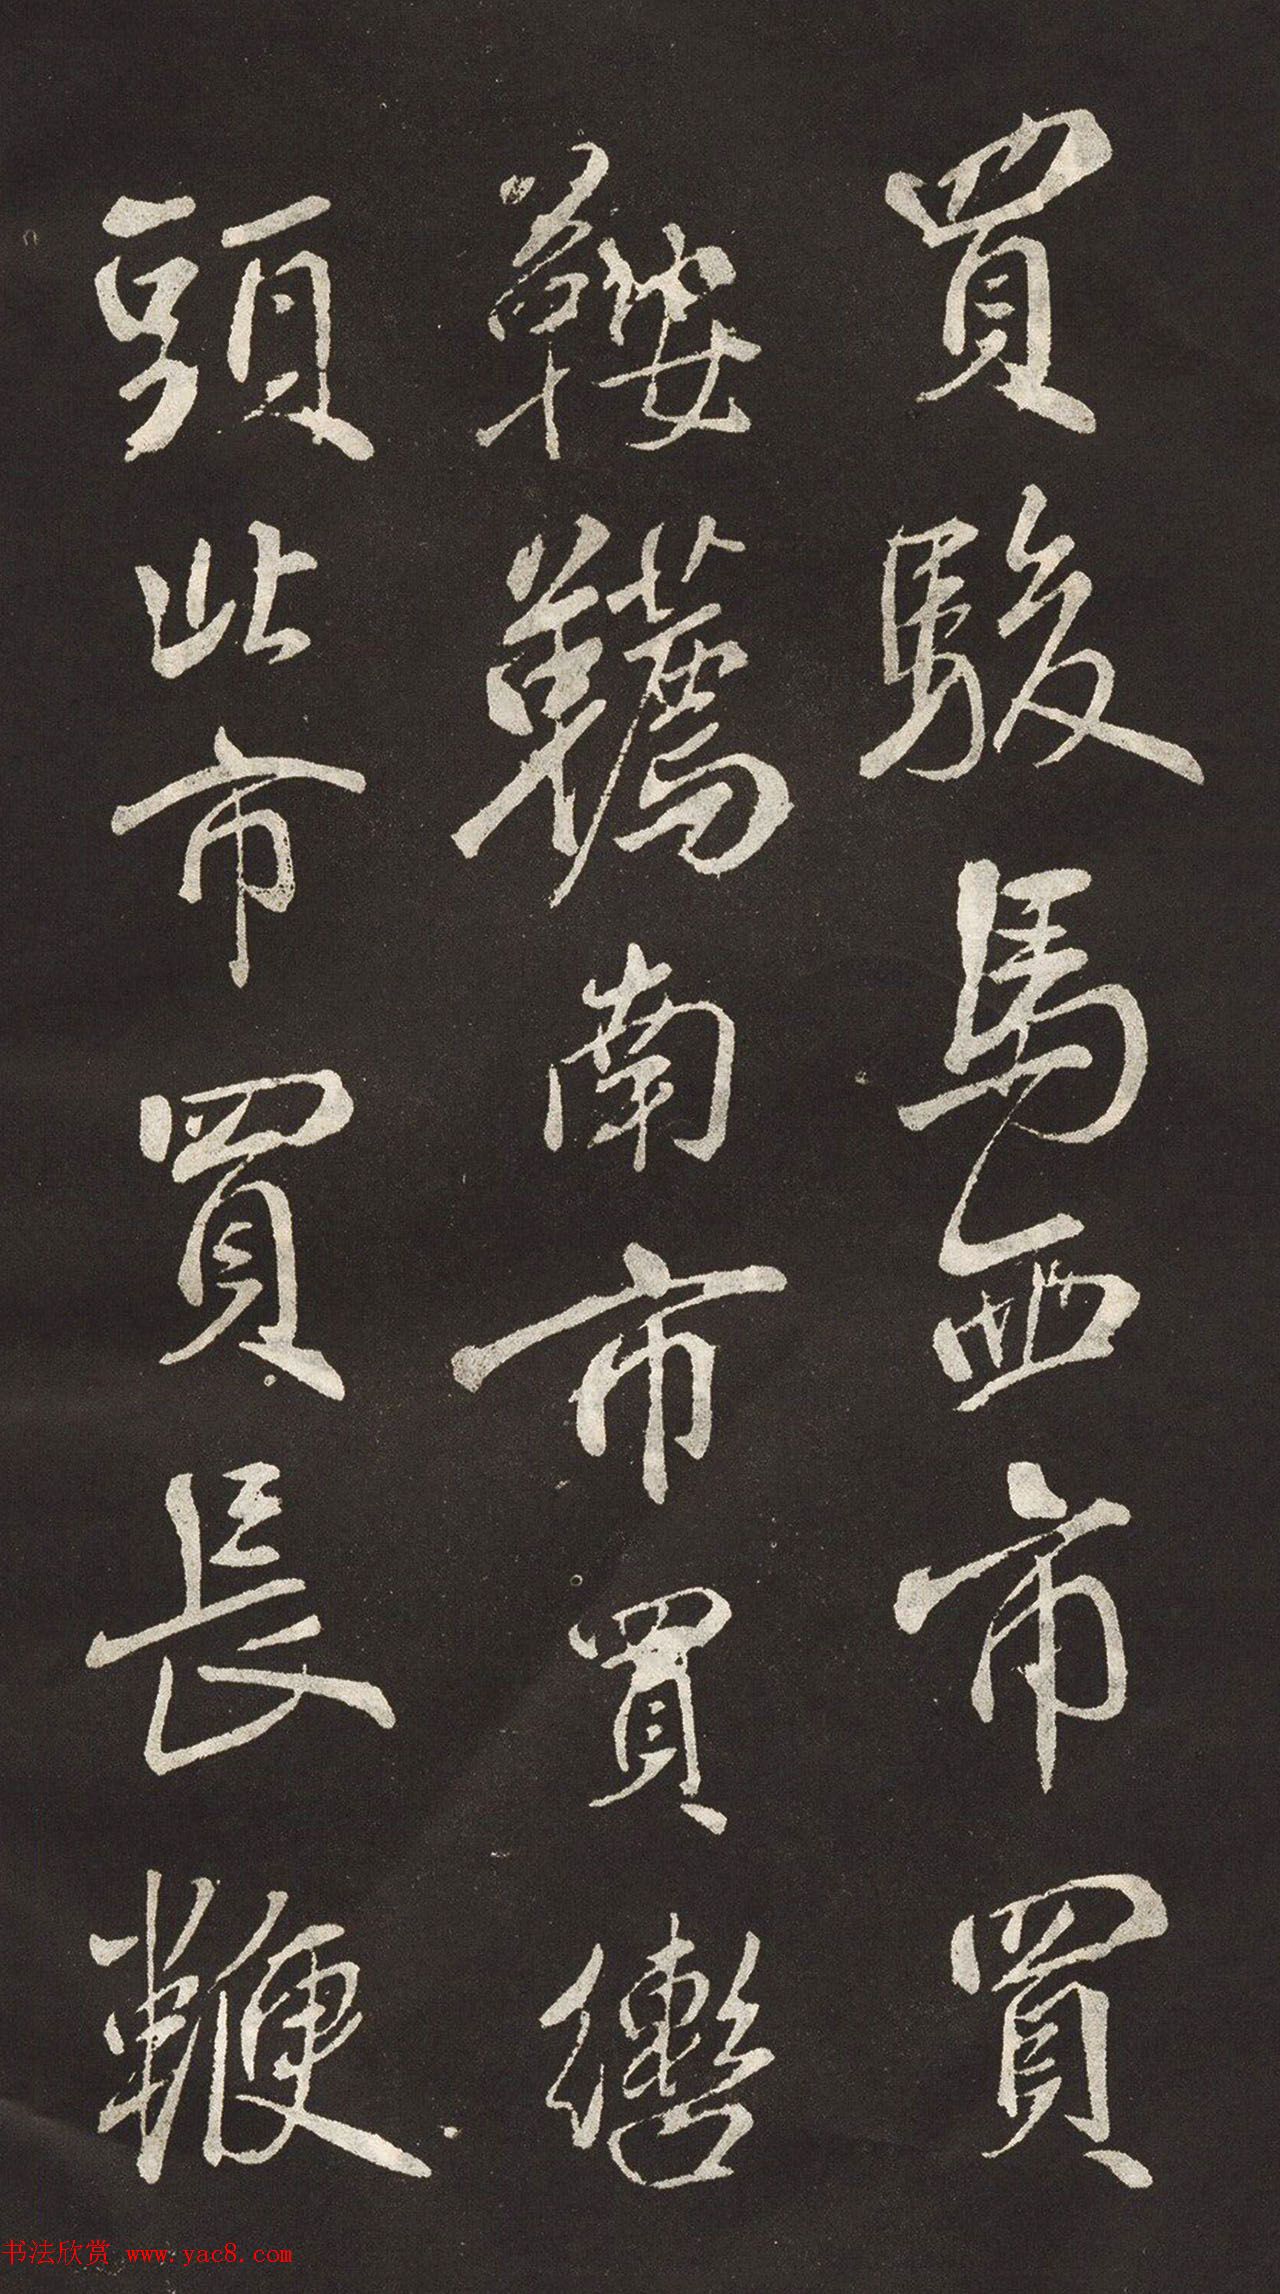 買駿馬西市買
鞍韉南市買轡
頭北市買長鞭
书法欣赏 www.yac8.com